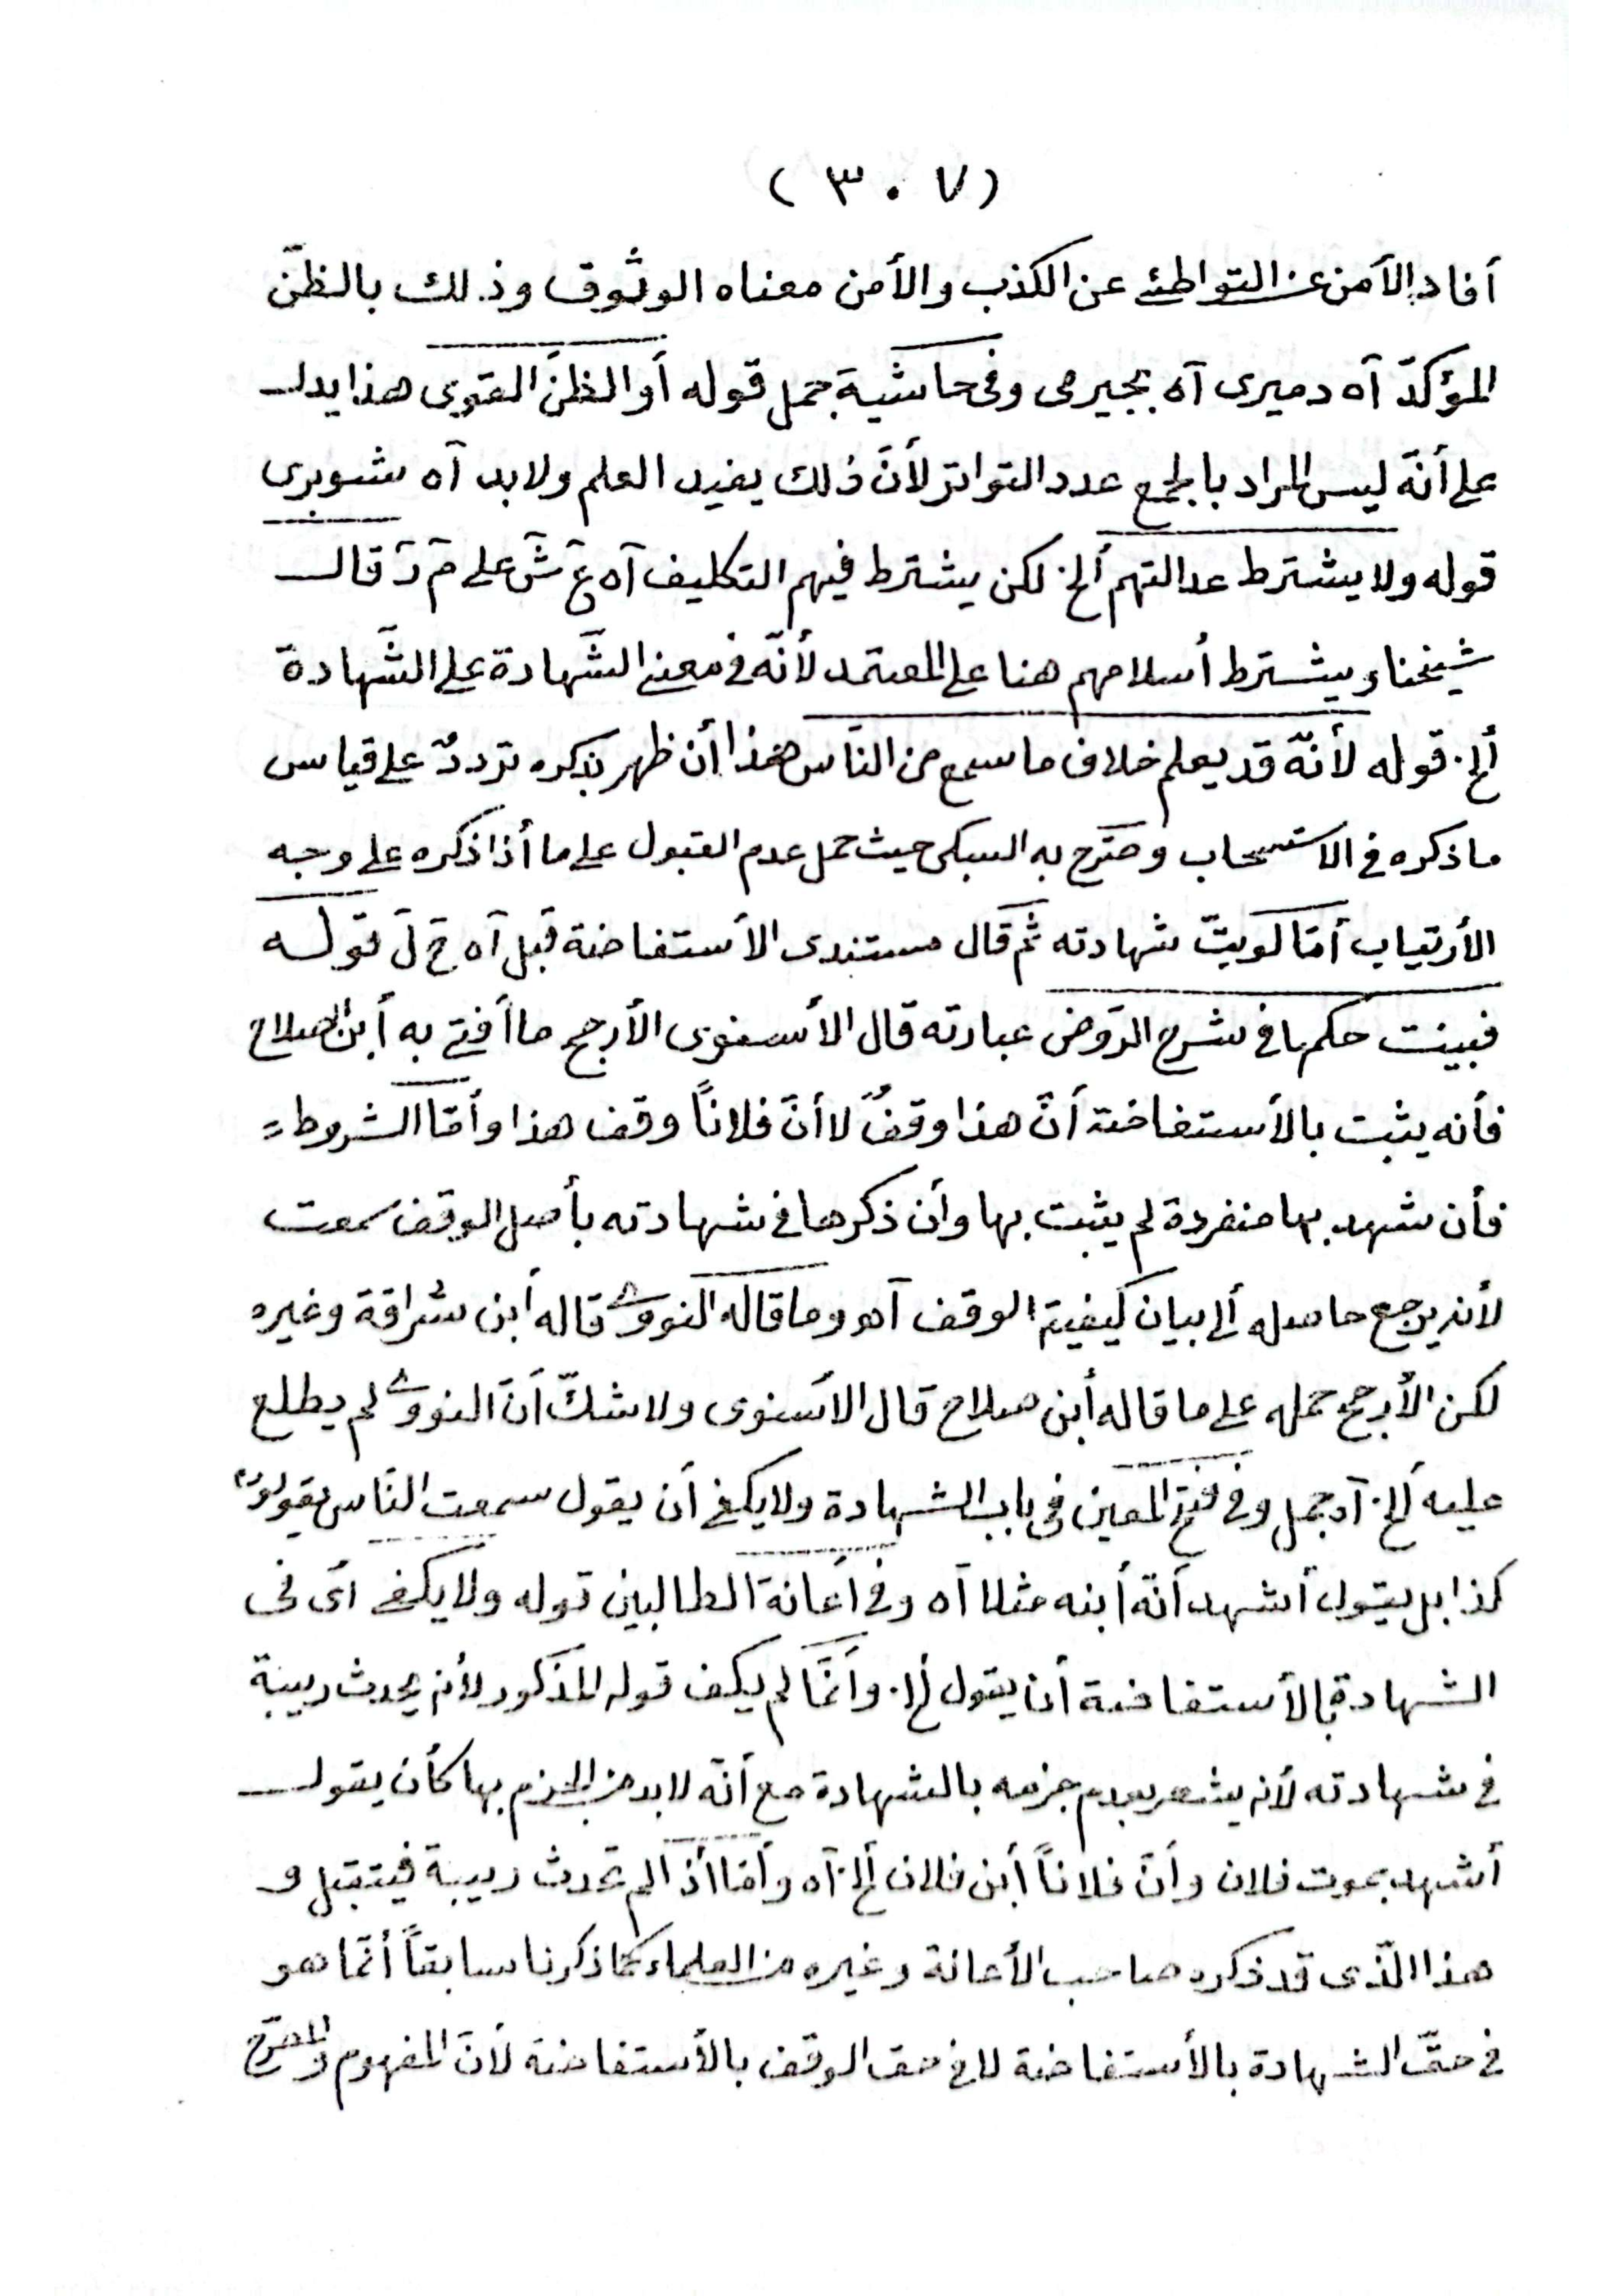 ( ٣٠٧ )
أفاد الأمن عن التواطئ عن الكذب والأمن معناه الوثوق وذلك بالظنّ
المؤكدّ آه دميرى آه بجيرمى وفى حاشية جمل قوله أو الظنّ القوى هذا يدل
على أنّه ليس المراد بالجمع عدد التواتر لأنّ ذلك يفيد العلم ولابد آه شوبرى
قوله ولا يشترط عدالتهم ألخ. لكن يشترط فيهم التكليف آه ع ش على م ر قال
شيخنا ويشترط أسلامهم هنا على المعتمد لأنّه فى معنى الشّهادة على الشّهادة
ألخ. قوله لأنّه قد يعلم خلاف ما سمع من النّاس هذا أن ظهر بذكره تردّدٌ على قياس
ما ذكره فى الاستصحاب وصّرح به السبكى حيث حمل عدم القبول على ما أذا ذكره على وجه
الأرتياب أمّا لو بتّ شهادته ثم قال مستندى الأستفاضة قبل آه ح ل قوله
فبينت حكمها فى شرح الرّوض عبارته قال الأسنوى الأرجح ما أفتى به أبن الصلاح
فأنه يثبت بالأستفاضة أنّ هذا وقفٌ لا أنّ فلاناً وقف هذا وأمّا الشروط
فأن شهد بها منفردة لم يثبت بها وأن ذكرها فى شهادته بأصل الوقف سمعت
لأنه يرجع حاصله ألى بيان كيفية الوقف آه وما قاله النووى قاله أبن سُراقة وغيره
لكن الأرجح حمله على ما قاله أبن صلاح قال الأسنوى ولا شكّ أنّ النووى لم يطلع
عليه ألخ. آه جمل وفى فتح المعين فى باب الشهادة ولا يكفى أن يقول سمعت النّاس يقولون
كذا بل يقول أشهد أنّه أبنه مثلا آه وفى أعانة الطالبين قوله ولا يكفى أى فى
الشهادة بالأستفاضة أن يقول ألخ. وأنّما لم يكف قوله المذكور لأنه يحدث ريبة
فى شهادته لأنه يشعر بعدم جزمه بالشهادة مع أنّه لابد من الجزم بها كأن يقول
أشهد بموت فلان وأنّ فلاناً أبن فلان ألخ. آه وأمّا أذا لم تحدث ريبة فيتقبل و
هذا الّذى قد ذكره صاحب الأعانة وغيره من العلماء كما ذكرنا سابقاً أنّما هو
فى حقّ الشهادة بالأستفاضة لا فى حق الوقف بالأستفاضة لأنّ المفهوم والمصّرح